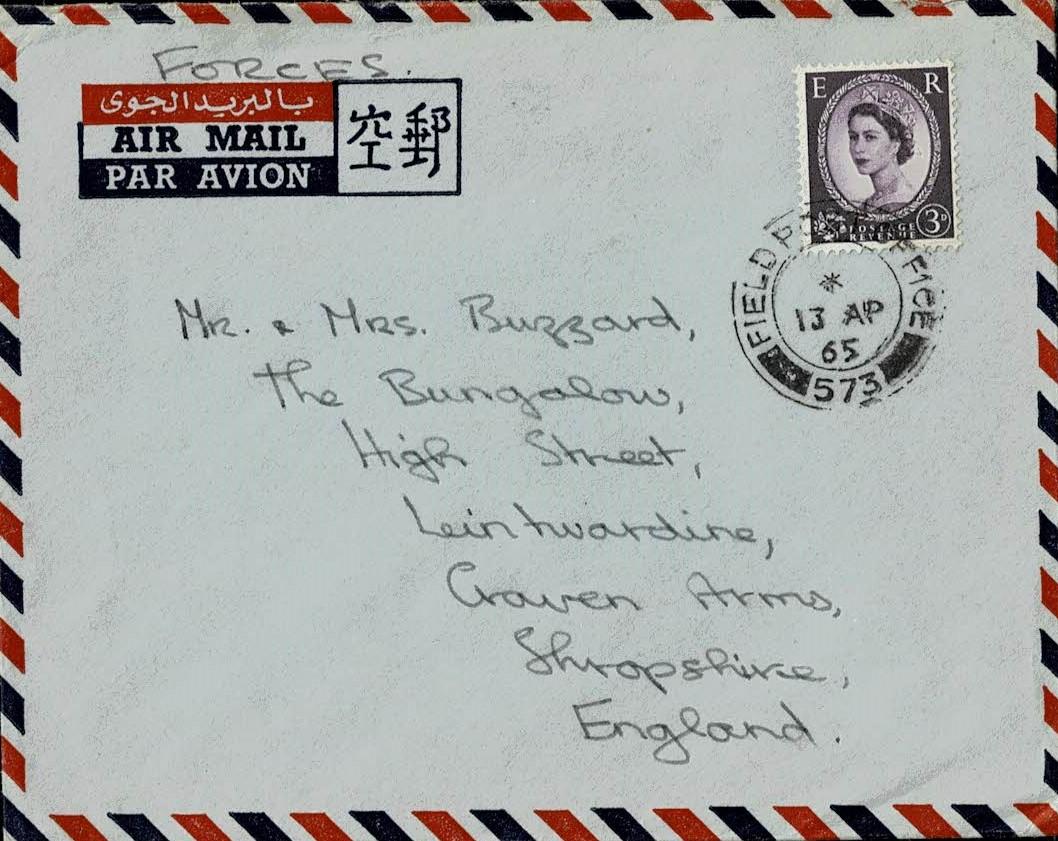 FORCES.
بالبريد الجوى
AIR MAIL
PAR AVION
空郵
E R
POSTAGE
REVENUE
3D
FIELD POST OFFICE
*
13 AP
65
573
Mr. & Mrs. Buzzard,
The Bungalow,
High Street,
Leintwardine,
Craven Arms,
Shropshire,
England.